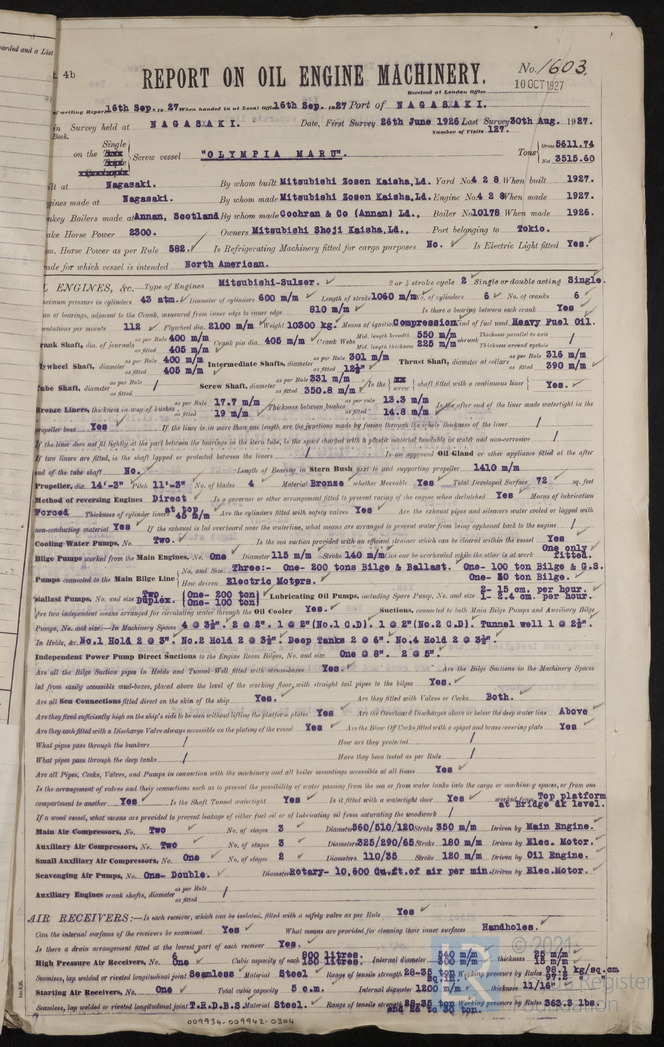 arded and a List
4b
REPORT ON OIL ENGINE MACHINERY.
No. 1603.
Received at London Office
10 OCT 1927
of writing Report 16th Sep. 19 27 When handed in at Local Office 16th Sep. 19 27 Port of NAGASAKI.
in Survey held at NAGASAKI. Date, First Survey 26th June 1926 Last Survey 30th Aug. 1927.
Book. Number of Visits 127.
on the Single Screw vessel "OLYMPIA MARU". Tons Gross 5611.74
Net 3515.60
lt at Nagasaki. By whom built Mitsubishi Zosen Kaisha, Ld. Yard No. 428 When built 1927.
gines made at Nagasaki. By whom made Mitsubishi Zosen Kaisha, Ld. Engine No. 428 When made 1927.
nkey Boilers made at Annan, Scotland By whom made Cochran & Co (Annan) Ld., Boiler No. 10178 When made 1926.
ake Horse Power 2300. Owners Mitsubishi Shoji Kaisha, Ld., Port belonging to Tokio.
m. Horse Power as per Rule 582. Is Refrigerating Machinery fitted for cargo purposes No. Is Electric Light fitted Yes.
ade for which vessel is intended North American.
L ENGINES, &c. Type of Engines Mitsubishi-Sulzer. 2 or 4 stroke cycle 2 Single or double acting Single.
aximum pressure in cylinders 43 atm. Diameter of cylinders 600 m/m Length of stroke 1060 m/m No. of cylinders 6 No. of cranks 6
an of bearings, adjacent to the Crank, measured from inner edge to inner edge 810 m/m Is there a bearing between each crank Yes
evolutions per minute 112 Flywheel dia. 2100 m/m Weight 10300 kg. Means of ignition Compression Kind of fuel used Heavy Fuel Oil.
rank Shaft, dia. of journals as per Rule 400 m/m as fitted 405 m/m Crank pin dia. 405 m/m Crank Webs Mid. length breadth 550 m/m Mid. length thickness 225 m/m shrunk Thickness parallel to axis / Thickness around eyehole /
lywheel Shaft, diameter as per Rule 400 m/m as fitted 405 m/m Intermediate Shafts, diameter as per Rule 301 m/m as fitted 12½" Thrust Shaft, diameter at collars as per Rule 316 m/m as fitted 390 m/m
ube Shaft, diameter as per Rule / as fitted Screw Shaft, diameter as per Rule 331 m/m as fitted 350.8 m/m Is the screw shaft fitted with a continuous liner Yes.
ronze Liners, thickness in way of bushes as per Rule 17.7 m/m as fitted 19 m/m Thickness between bushes as per rule 13.3 m/m as fitted 14.8 m/m Is the after end of the liner made watertight in the
propeller boss Yes If the liner is in more than one length are the junctions made by fusion through the whole thickness of the liner /
If the liner does not fit tightly at the part between the bearings in the stern tube, is the space charged with a plastic material insoluble in water and non-corrosive /
If two liners are fitted, is the shaft lapped or protected between the liners / Is an approved Oil Gland or other appliance fitted at the after
end of the tube shaft No. Length of Bearing in Stern Bush next to and supporting propeller 1410 m/m
Propeller, dia. 14'-3" Pitch 11'-3" No. of blades 4 Material Bronze whether Moveable Yes Total Developed Surface 72 sq. feet
Method of reversing Engines Direct Is a governor or other arrangement fitted to prevent racing of the engine when declutched Yes Means of lubrication
Forced Thickness of cylinder liners at top 45 m/m Are the cylinders fitted with safety valves Yes Are the exhaust pipes and silencers water cooled or lagged with
non-conducting material Yes If the exhaust is led overboard near the waterline, what means are arranged to prevent water from being syphoned back to the engine /
Cooling Water Pumps, No. Two. Is the sea suction provided with an efficient strainer which can be cleared within the vessel Yes
Bilge Pumps worked from the Main Engines, No. One Diameter 115 m/m Stroke 140 m/m Can one be overhauled while the other is at work One only fitted.
Pumps connected to the Main Bilge Line No. and Size Three:- One- 200 tons Bilge & Ballast. One- 100 ton Bilge & G.S.
How driven Electric Motors. One- 30 ton Bilge.
Ballast Pumps, No. and size Two Duplex. (One- 200 ton) (One- 100 ton) Lubricating Oil Pumps, including Spare Pump, No. and size 2- 15 cm. per hour. 1- 2.4 cm. per hour.
Are two independent means arranged for circulating water through the Oil Cooler Yes. Suctions, connected to both Main Bilge Pumps and Auxiliary Bilge
Pumps, No. and size:—In Machinery Spaces 4 @ 3½". 2 @ 2". 1 @ 2"(No.1 C.D) 1 @ 2"(No.2 C.D). Tunnel well 1 @ 2½".
In Holds, &c. No.1 Hold 2 @ 3". No.2 Hold 2 @ 3½". Deep Tanks 2 @ 6". No.4 Hold 2 @ 3½".
Independent Power Pump Direct Suctions to the Engine Room Bilges, No. and size One @ 8". 2 @ 5".
Are all the Bilge Suction pipes in Holds and Tunnel Well fitted with strum-boxes Yes. Are the Bilge Suctions in the Machinery Spaces
led from easily accessible mud-boxes, placed above the level of the working floor, with straight tail pipes to the bilges Yes.
Are all Sea Connections fitted direct on the skin of the ship Yes. Are they fitted with Valves or Cocks Both.
Are they fixed sufficiently high on the ship's side to be seen without lifting the platform plates Yes Are the Overboard Discharges above or below the deep water line Above
Are they each fitted with a Discharge Valve always accessible on the plating of the vessel Yes Are the Blow Off Cocks fitted with a spigot and brass covering plate Yes
What pipes pass through the bunkers / How are they protected /
What pipes pass through the deep tanks / Have they been tested as per Rule /
Are all Pipes, Cocks, Valves, and Pumps in connection with the machinery and all boiler mountings accessible at all times Yes
Is the arrangement of valves and their connections such as to prevent the possibility of water passing from the sea or from water tanks into the cargo or machinery spaces, or from one
compartment to another Yes Is the Shaft Tunnel watertight Yes Is it fitted with a watertight door Yes worked from Top platform at Bridge dk level.
If a wood vessel, what means are provided to prevent leakage of either fuel oil or of lubricating oil from saturating the woodwork /
Main Air Compressors, No. Two No. of stages 3 Diameters 560/510/120 Stroke 350 m/m Driven by Main Engine.
Auxiliary Air Compressors, No. Two No. of stages 3 Diameters 325/290/65 Stroke 180 m/m Driven by Elec. Motor.
Small Auxiliary Air Compressors, No. One No. of stages 2 Diameters 110/35 Stroke 120 m/m Driven by Oil Engine.
Scavenging Air Pumps, No. One- Double. Diameter Rotary- 10,600 Cu.ft.of air per min. Driven by Elec.Motor.
Auxiliary Engines crank shafts, diameter as per Rule / as fitted
AIR RECEIVERS:—Is each receiver, which can be isolated, fitted with a safety valve as per Rule Yes
Can the internal surfaces of the receivers be examined Yes What means are provided for cleaning their inner surfaces Handholes.
Is there a drain arrangement fitted at the lowest part of each receiver Yes.
High Pressure Air Receivers, No. 6 One Cubic capacity of each 800 litres. 150 litres. Internal diameter 540 m/m thickness 25 m/m 15 m/m
Seamless, lap welded or riveted longitudinal joint Seamless Material Steel Range of tensile strength 28-35 ton sq.in. Working pressure by Rules 98.1 kg/sq.cm 97.2 "
Starting Air Receivers, No. One Total cubic capacity 5 c.m. Internal diameter 1200 m/m thickness 11/16"
Seamless, lap welded or riveted longitudinal joint T.R.D.B.S. Material Steel. Range of tensile strength 28-35 ton and 26 to 30 ton. Working pressure by Rules 363.3 lbs.
009934-009942-0304
© 2021
LR
Register
Foundation